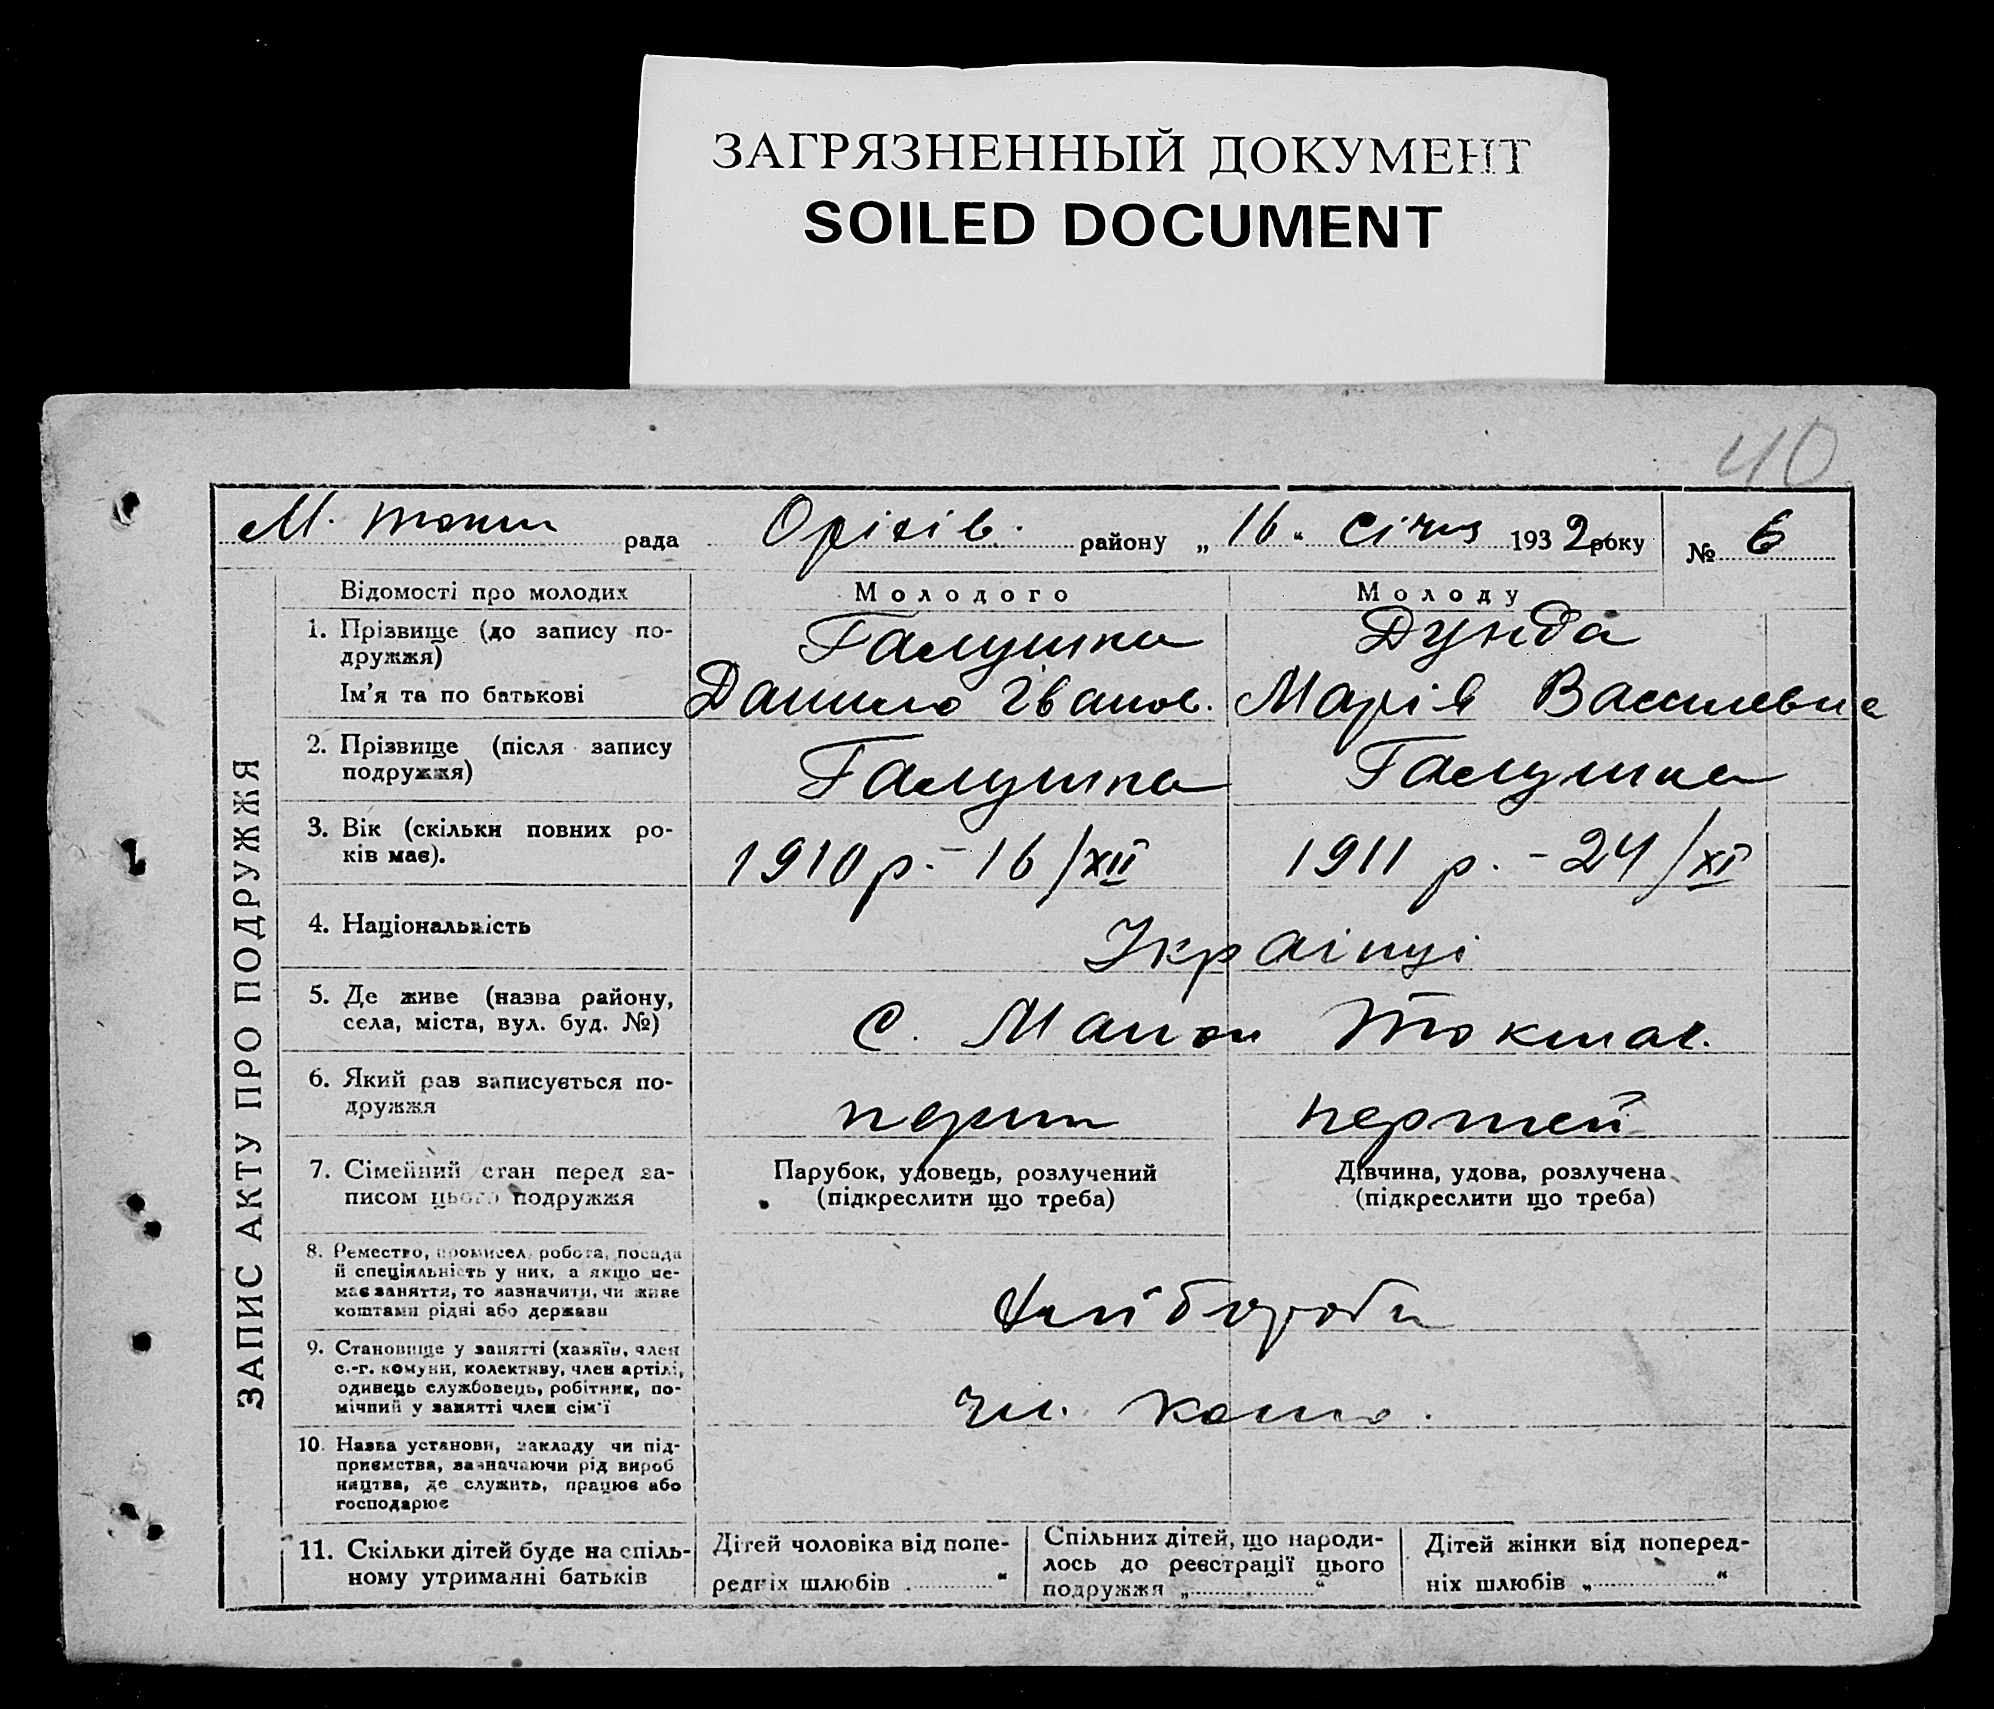 ЗАГРЯЗНЕННЫЙ ДОКУМЕНТ
SOILED DOCUMENT
40
М. токм рада Оріхів. району „16“ Січня 1932 року № 6
ЗАПИС АКТУ ПРО ПОДРУЖЖЯ
Відомості про молодих
Молодого
Молоду
1. Прізвище (до запису по-
дружжя)
Галушка
Дунда
Ім'я та по батькові
Данило Іванов.
Марія Василевна
2. Прізвище (після запису
подружжя)
Галушка
Галушка
3. Вік (скільки повних ро-
ків має).
1910 р. - 16/XII
1911 р. - 24/XI
4. Національність
Українці
5. Де живе (назва району,
села, міста, вул. буд. №)
С. Малой Токмач.
6. Який раз записується по-
дружжя
перши
першей
7. Сімейний стан перед за-
писом цього подружжя
Парубок, удовець, розлучений
(підкреслити що треба)
Дівчина, удова, розлучена
(підкреслити що треба)
8. Ремество, промисел, робота, посада
й спеціяльність у них, а якщо не-
має заняття, то зазначити, чи живе
коштами рідні або держави
хліборобы
9. Становище у занятті (хазяїн, член
с.-г. комуни, колективу, член артілі,
одинець службовець, робітник, по-
мічний у занятті член сім'ї
чл.
10. Назва установи, закладу чи під-
приємства, зазначаючи рід вироб
ництва, де служить, працює або
господарює
11. Скільки дітей буде на спіль-
ному утриманні батьків
Дітей чоловіка від попе-
редніх шлюбів „ “
Спільних дітей, що народи-
лось до реєстрації цього
подружжя „ “
Дітей жінки від поперед-
ніх шлюбів „ “